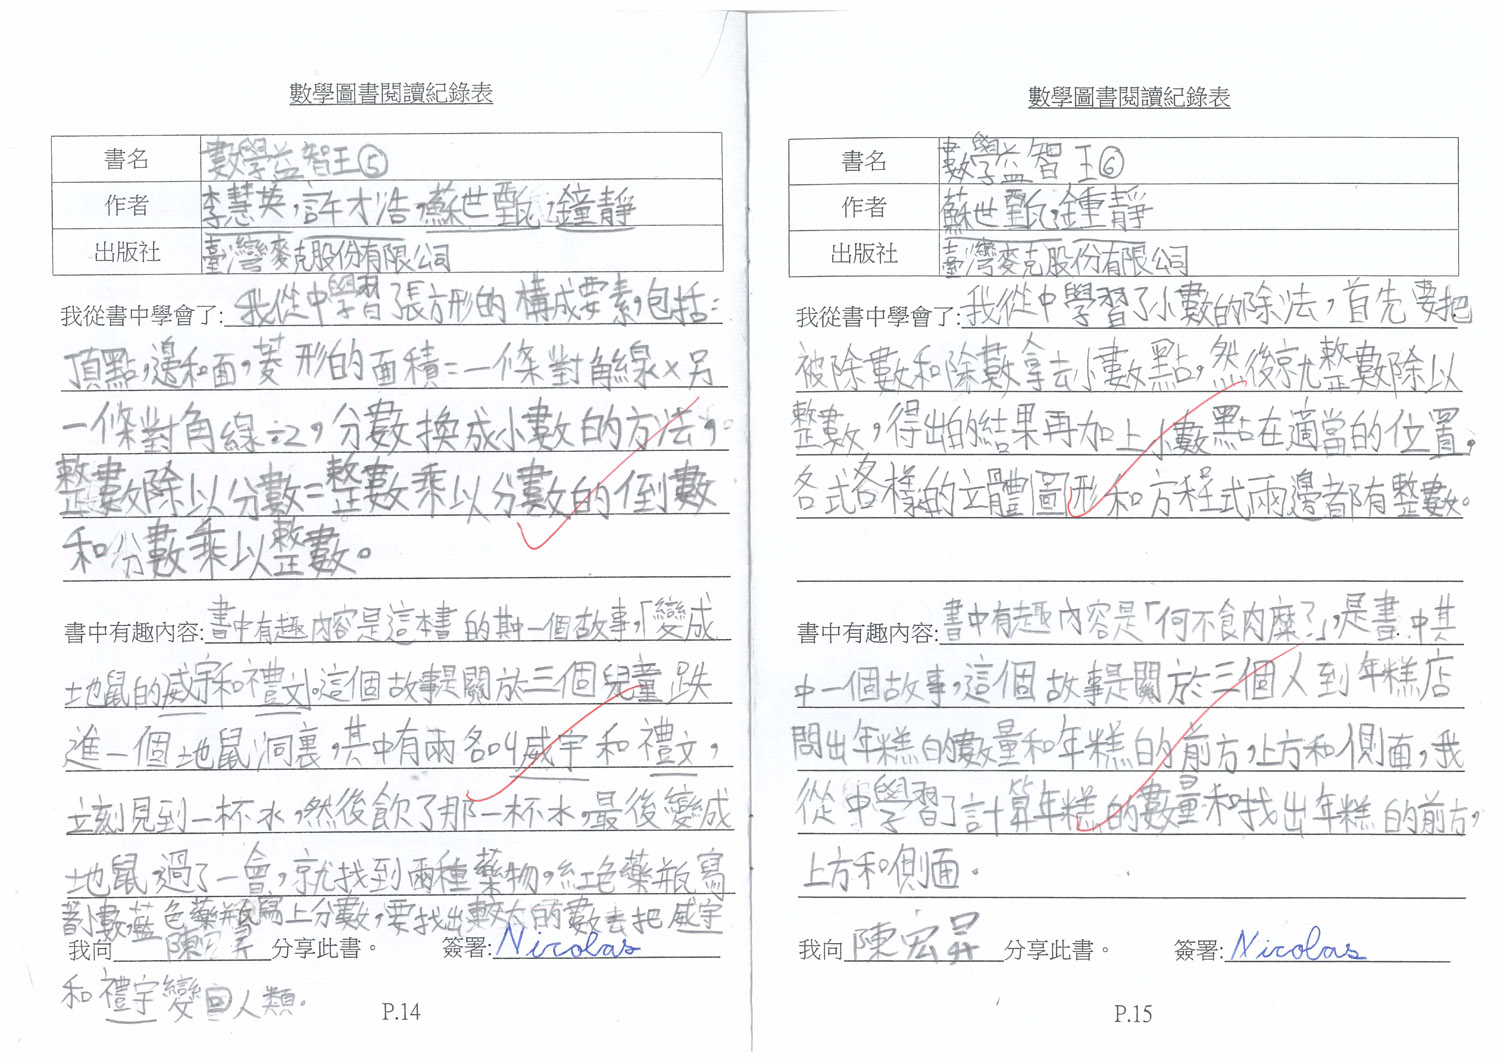 數學圖書閱讀紀錄表
書名 數學益智王⑤
作者 李慧英,許才浩,蘇世甄,鐘靜
出版社 臺灣麥克股份有限公司
我從書中學會了:我從中學習了長方形的構成要素,包括:
頂點,邊和面,菱形的面積=一條對角線×另
一條對角線÷2,分數換成小數的方法,
整數除以分數=整數乘以分數的倒數
和分數乘以整數。
書中有趣內容:書中有趣內容是這本書的其中一個故事,「變成
地鼠的威宇和禮文」。這個故事是關於三個兒童跌
進一個地鼠洞裏,其中有兩名叫威宇和禮文,
立刻見到一杯水,然後飲了那一杯水,最後變成
地鼠,過了一會,就找到兩種藥物,紅色藥瓶寫
着小數,藍色藥瓶寫上分數,要找出較大的數去把威宇
我向陳宏昇分享此書。 簽署:Nicolas
和禮宇變回人類。
P.14
數學圖書閱讀紀錄表
書名 數學益智王⑥
作者 蘇世甄,鍾靜
出版社 臺灣麥克股份有限公司
我從書中學會了:我從中學習了小數的除法,首先要把
被除數和除數拿去小數點,然後就整數除以
整數,得出的結果再加上小數點在適當的位置,
各式各樣的立體圖形和方程式兩邊都有整數。
書中有趣內容:書中有趣內容是「何不食肉糜?」,是書中其
中一個故事,這個故事是關於三個人到年糕店
問出年糕的數量和年糕的前方,上方和側面,我
從中學習了計算年糕的數量和找出年糕的前方,
上方和側面。
我向陳宏昇分享此書。 簽署:Nicolas
P.15